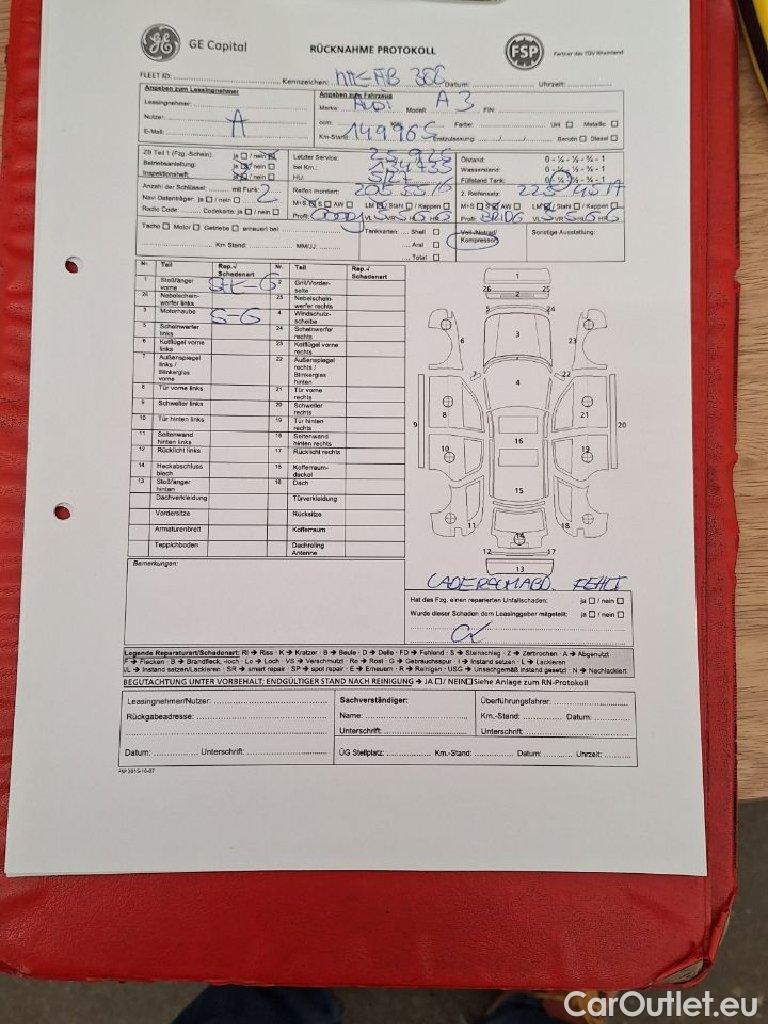 GE Capital
RÜCKNAHME PROTOKOLL
FSP
Partner des TÜV Rheinland
FLEET ID: Kennzeichen: Datum: Uhrzeit:
Angaben zum Leasingnehmer
Leasingnehmer:
Nutzer: A
E-Mail:
Angaben zum Fahrzeug
Marke: AUDI Modell: A 3 FIN:
ccm: Farbe: Uni Metallic
Km-Stand: 149965 Erstzulassung: Benzin Diesel
ZB Teil 1 (Fzg.-Schein): ja / nein
Betriebsanleitung: ja / nein
Inspektionsheft: ja / nein
Anzahl der Schlüssel: mit Funk: 2
Navi Datenträger: ja / nein
Radio Code: Codekarte: ja / nein
Letzter Service:
bei Km.:
HU: 5/27
Reifen montiert: 205 55 16
M+S S AW LM / Stahl / Kappen
Profil: GOODY VL VR HL HR
Ölstand: 0 - ¼ - ½ - ¾ - 1
Wasserstand: 0 - ¼ - ½ - ¾ - 1
Füllstand Tank: 0 - ¼ - ½ - ¾ - 1
2. Reifensatz: 225 45 17
M+S S AW LM / Stahl / Kappen
Profil: BRIDG VL VR HL HR
Tacho Motor Getriebe erneuert bei
Km Stand: MM/JJ:
Tankkarten: Shell
Aral
Total
Voll-/Notrad/
Kompressor
Sonstige Ausstattung:
Nr. Teil Rep.-/ Schadenart Nr. Teil Rep.-/ Schadenart
1 Stoßfänger vorne 2 Grill/Vorderseite
Nebelscheinwerfer links Nebelscheinwerfer rechts
3 Motorhaube S-G 4 Windschutzscheibe
5 Scheinwerfer links 24 Scheinwerfer rechts
6 Kotflügel vorne links 23 Kotflügel vorne rechts
7 Außenspiegel links / Blinkerglas vorne 22 Außenspiegel rechts / Blinkerglas hinten
8 Tür vorne links 21 Tür vorne rechts
9 Schweller links 20 Schweller rechts
10 Tür hinten links 19 Tür hinten rechts
11 Seitenwand hinten links 18 Seitenwand hinten rechts
12 Rücklicht links 17 Rücklicht rechts
14 Heckabschlussblech 15 Kofferraumdeckel
13 Stoßfänger hinten 16 Dach
Dachverkleidung Türverkleidung
Vordersitze Rücksitze
Armaturenbrett Kofferraum
Teppichboden Dachreling Antenne
1
26 25
2
5 24
6 3 23
7 22
4
8 21
9 20
10 16 19
15
11 14 18
12 17
13
Bemerkungen:
Hat das Fzg. einen reparierten Unfallschaden: ja / nein
Wurde dieser Schaden dem Leasinggeber mitgeteilt: ja / nein
Legende Reparaturart/Schadenart: RI → Riss · K → Kratzer · B → Beule · D → Delle · FD → Fehlend · S → Steinschlag · Z → Zerbrochen · A → Abgenutzt
F → Flecken · B → Brandfleck, Loch · Lo → Loch · VS → Verschmutzt · Ro → Rost · G → Gebrauchsspur · I → Instand setzen · L → Lackieren
I/L → Instand setzen/Lackieren · S/R → smart repair · S.P → spot repair · E → Erneuern · R → Reinigen · USG → Unsachgemäß instand gesetzt · N → Nachlackiert
BEGUTACHTUNG UNTER VORBEHALT; ENDGÜLTIGER STAND NACH REINIGUNG → JA / NEIN Siehe Anlage zum RN-Protokoll
Leasingnehmer/Nutzer:
Rückgabeadresse:
Datum: Unterschrift:
Sachverständiger:
Name:
Unterschrift:
Überführungsfahrer:
Km.-Stand: Datum:
Unterschrift:
ÜG Stellplatz: Km.-Stand: Datum: Uhrzeit:
CarOutlet.eu